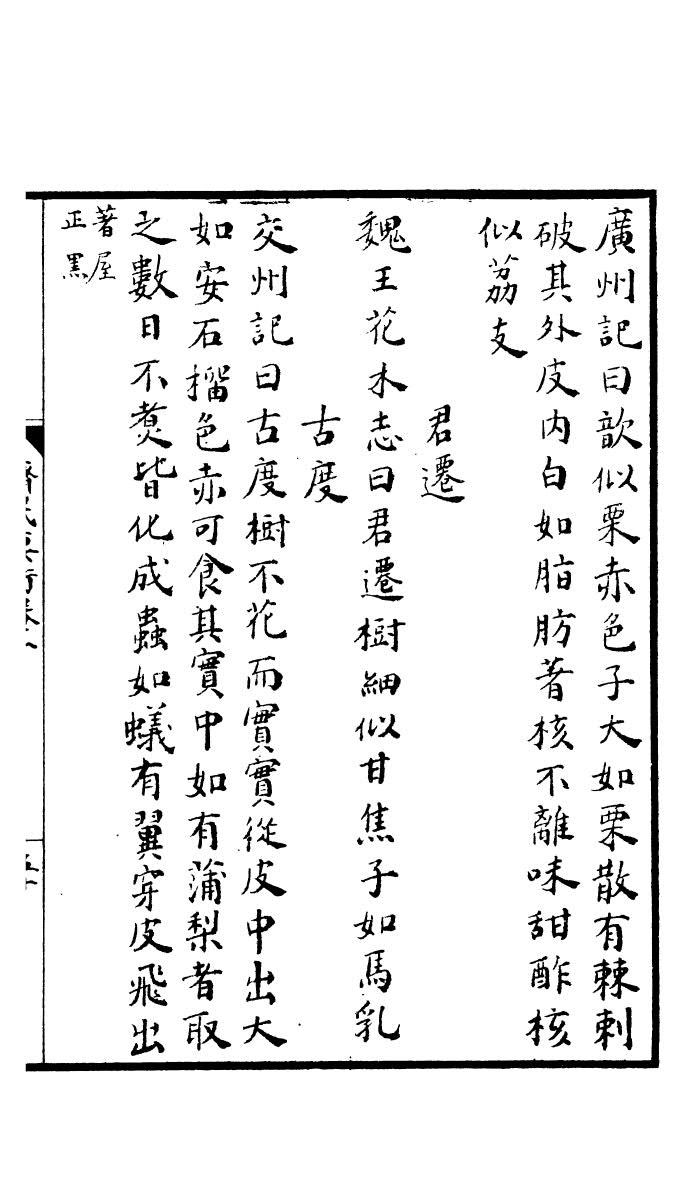 廣州記曰歆似栗赤色子大如栗散有棘刺
破其外皮內白如脂肪著核不離味甜酢核
似荔支
君遷
魏王花木志曰君遷樹細似甘焦子如馬乳
古度
交州記曰古度樹不花而實實從皮中出大
如安石榴色赤可食其實中如有蒲梨者取
之數日不煑皆化成蟲如蟻有翼穿皮飛出
著屋
正黑